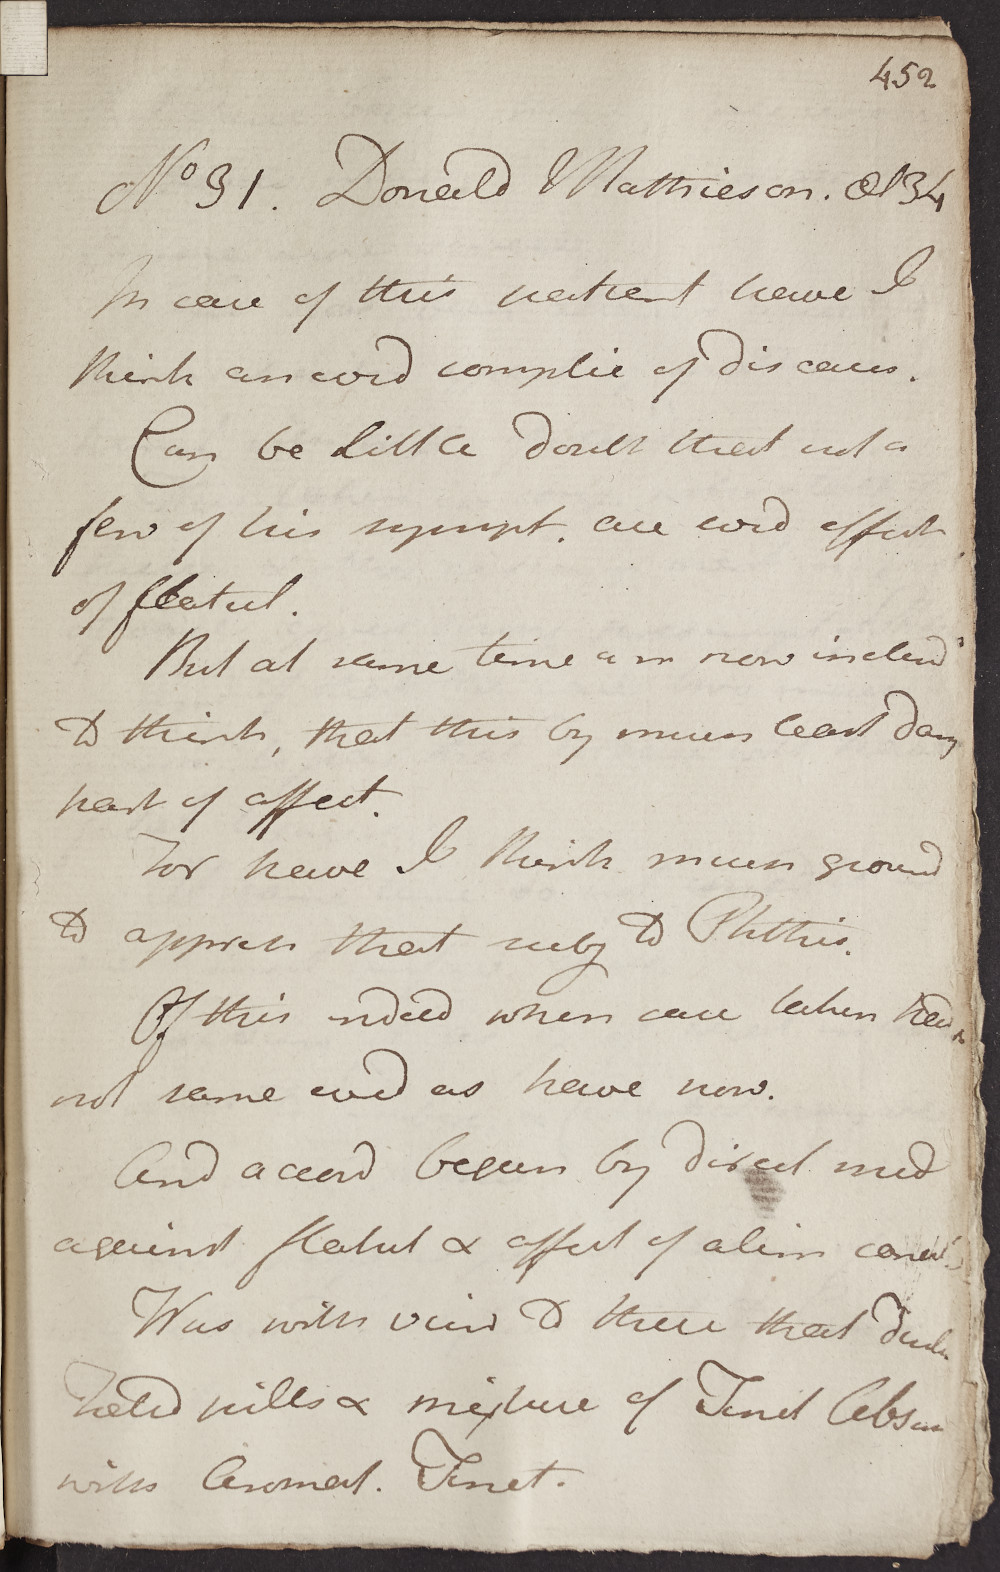 452
No 31. Donald Mathieson. Æt 34
In case of this patient have I
think an evid complic of diseases.
Can be little doubt that not a
few of his sympt. are evid effects
of flatul.
But at same time am now inclind
to think, that this by much least dang
part of affect.
For have I think much ground
to appreh that subj to Phthis.
Of this indeed when case taken had
not same evid as have now.
And accord begun by direct med
against flatul & affect of alim canal
Was with view to these that
Fetid pills & mixture of Tinct Absin
with Aromat. Tinct.